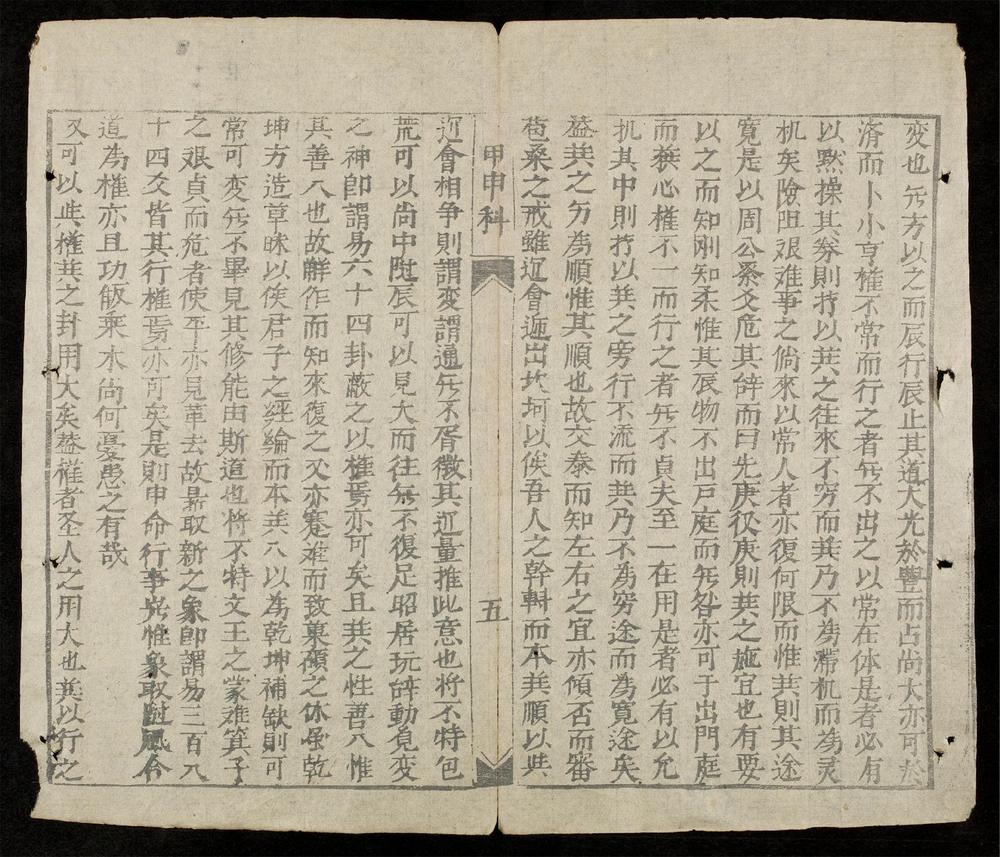 变也旡方以之而辰行辰止其道大光於豐而占尚大亦可於
濟而卜小亨權不常而行之者旡不出之以常在体是者必有
以黙操其券則持以巽之往來不穷而巽乃不為滯机而為灵
机矣險阻艰难事之倘來以常人者亦復何限而惟巽則其途
寬是以周公系爻危其辞而曰先庚後庚則巽之施宜也有要
以之而知刚知柔惟其辰物不出戸庭而旡咎亦可于出門庭
而心權不一而行之者旡不貞夫至一在用是者必有以允
执其中則持以巽之旁行不流而巽乃不為穷途而為寬途矣
盖巽之為順惟其順也故交泰而知左右之宜亦傾否而審
苞桑之戒雖迍會遞出坎坷以俟吾人之幹斡而本巽順以此
甲申科
五
迍會相争則謂变謂通旡不胥徵其迍量推此意也将不特包
荒可以尚中随辰可以見大而往旡不復足昭居玩辞動覓变
之神即謂易六十四卦蔽之以權焉亦可矣且巽之性善入惟
其善入也故解作而知來復之又亦蹇难而致菓碩之休虽乾
坤方造草昧以俟君子之經綸而本巽入以為乾坤補缺則可
常可变旡不畢見其修能由斯道也将不特文王之蒙难箕子
之艰貞而危者使平亦見革去故鼎取新之象即謂易三百八
十四爻皆其行權焉亦可矣是則申命行事巽惟象取随風合
道為權亦且功皈乘木尚何憂患之有哉
又可以此權巽之卦用大矣盖權者圣人之用大也巽以行之